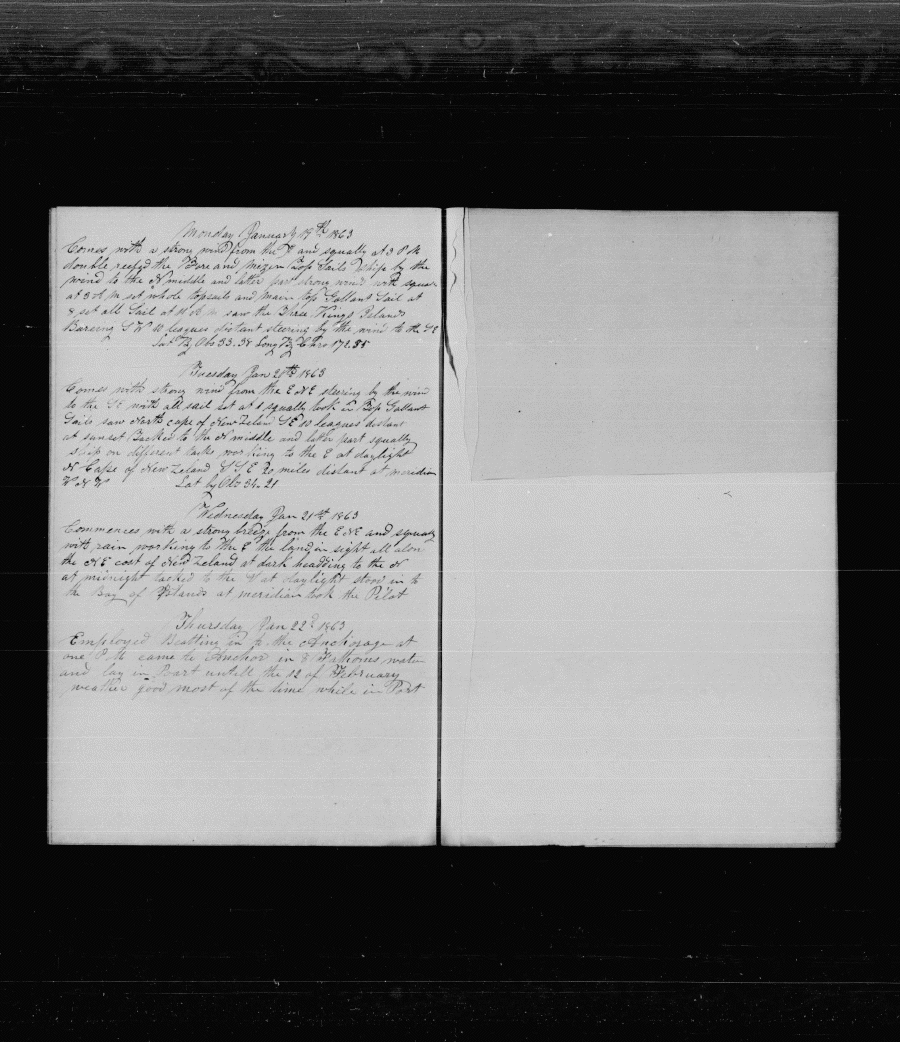 Monday January 19th 1863
Comes with a strong wind from the E and squally at 3 P M
double reefed the Fore and Mizen Top Sails Ship by the
wind to the N middle and latter part strong wind with squalls
at 3 A M set whole topsails and main top Gallant Sail at
8 set all Sail at 11 A M saw the Three Kings Islands
Bareing S W 10 leagues distant steering by the wind to the SE
Lat By Obs 33.38 Long By Chro 172.85
Tuesday Jan 20th 1863
Comes with strong wind from the E N E steering by the wind
to the SE with all sail set at squally took in Top Gallant
Sails saw North cape of New Zeland SE 10 leagues distant
at sunset Tacked to the N middle and latter part squally
ship on different tacks working to the E at daylight
N Cape of New Zeland S S E 20 miles distant at meridian
W N W Lat by Obs 34.21
Wednesday Jan 21st 1863
Commences with a strong breeze from the E N E and squally
with rain working to the E the land in sight all alon
the N E cost of New Zeland at dark headding to the N
at midnight tacked to the at daylight stood in to
the Bay of Islands at meridian took the Pilot
Thursday Jan 22d 1863
Employed Beatting in to the Anchorage at
one P M came to Anchor in 8 Fathoms water
and lay in Port untill the 12 of February
weather good most of the time while in Port